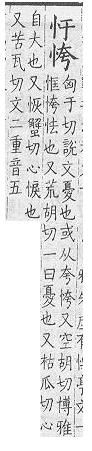 忓恗匈于切說文憂也或从夸恗又空胡切博雅
恇恗怯也又荒胡切一曰憂也又枯瓜切心
自大也又恢蟹切心悷也
又苦瓦切文二重音五